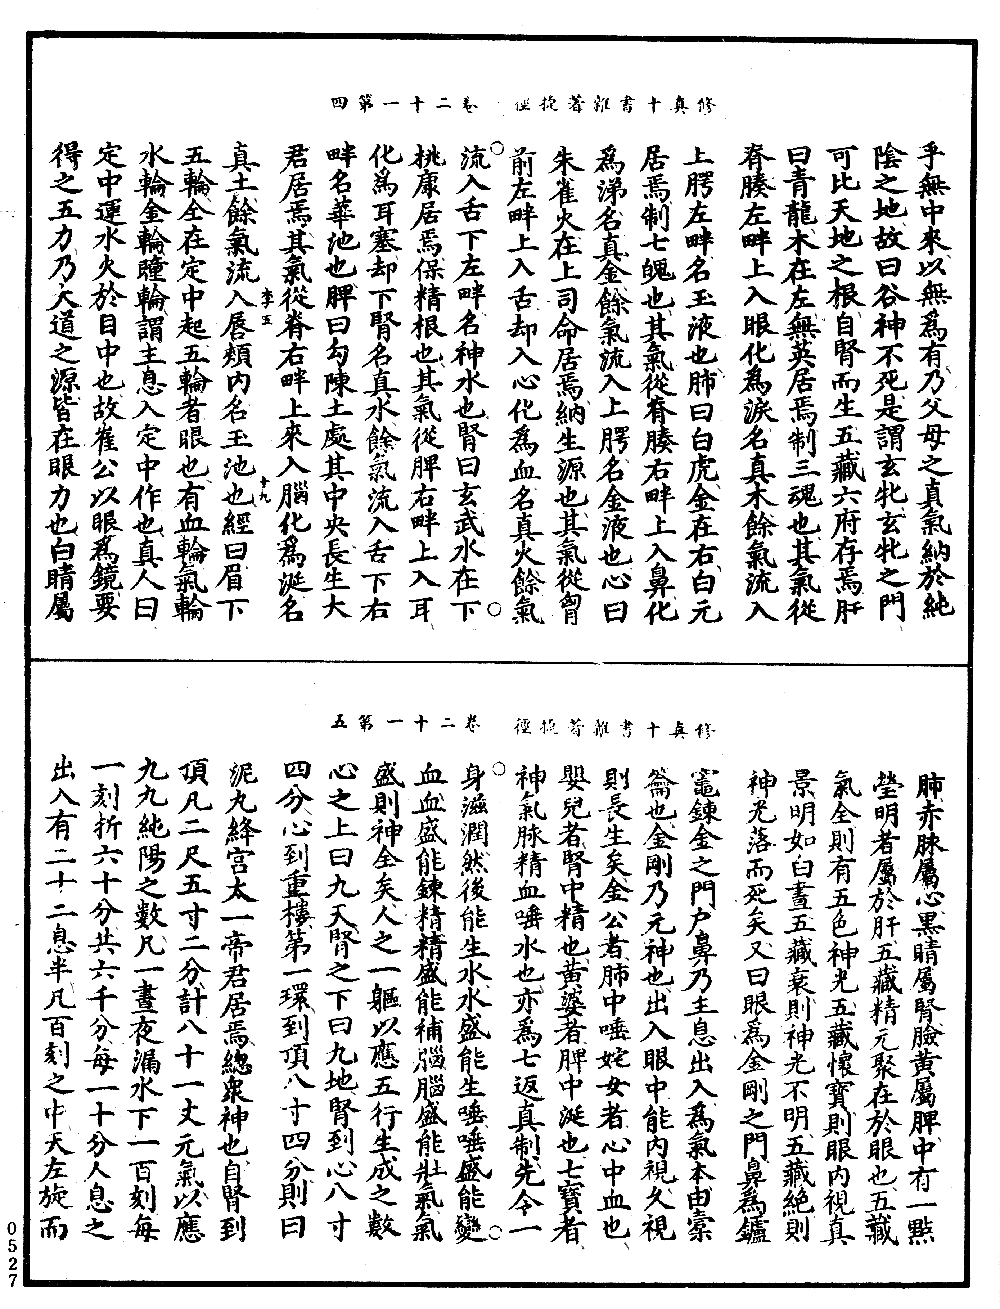 修真十書雜著捷徑　卷二十一第四
乎無中來以無爲有乃父母之真氣納於純
陰之地故曰谷神不死是謂玄牝玄牝之門
可比天地之根自腎而生五藏六府存焉肝
曰青龍木在左無英居焉制三魂也其氣從
脊膝左畔上入眼化爲淚名真木餘氣流入
上腭左畔名玉液也肺曰白虎金在右白元
居焉制七魄也其氣從脊膝右畔上入鼻化
爲涕名真金餘氣流入上腭名金液也心曰
朱雀火在上司命居焉納生源也其氣從胷
前左畔上入舌却入心化爲血名真火餘氣
流入舌下左畔名神水也腎曰玄武水在下
桃康居焉保精根也其氣從脾右畔上入耳
化爲耳塞却下腎名真水餘氣流入舌下右
畔名華池也脾曰勾陳土處其中央長生大
君居焉其氣從脊右畔上來入腦化爲涎名
李五　十九
真土餘氣流入唇頰內名玉池也經曰眉下
五輪全在定中起五輪者眼也有血輪氣輪
水輪金輪瞳輪謂主息入定中作也真人曰
定中運水火於目中也故崔公以眼爲鏡要
得之五力乃大道之源皆在眼力也白睛屬
修真十書雜著捷徑　卷二十一第五
肺赤脉屬心黑睛屬腎臉黄屬脾中有一點
瑩明者屬於肝五藏精元聚在於眼也五藏
氣全則有五色神光五藏懷寶則眼內視真
景明如白晝五藏衰則神光不明五藏絕則
神光落而死矣又曰眼爲金剛之門鼻爲鑪
竈鍊金之門户鼻乃主息出入爲氣本由橐
籥也金剛乃元神也出入眼中能內視久視
則長生矣金公者肺中唾姹女者心中血也
嬰兒者腎中精也黄婆者脾中涎也七寶者
神氣脉精血唾水也亦爲七返真制先令一
身滋潤然後能生水水盛能生唾唾盛能變
血血盛能鍊精精盛能補腦腦盛能壯氣氣
盛則神全矣人之一軀以應五行生成之數
心之上曰九天腎之下曰九地腎到心八寸
四分心到重樓第一環到頂八寸四分則曰
泥丸絳宮太一帝君居焉總衆神也自腎到
頂凡二尺五寸二分計八十一丈元氣以應
九九純陽之數凡一晝夜漏水下一百刻每
一刻折六十分共六千分每一十分人息之
出入有二十二息半凡百刻之中天左旋而
0527